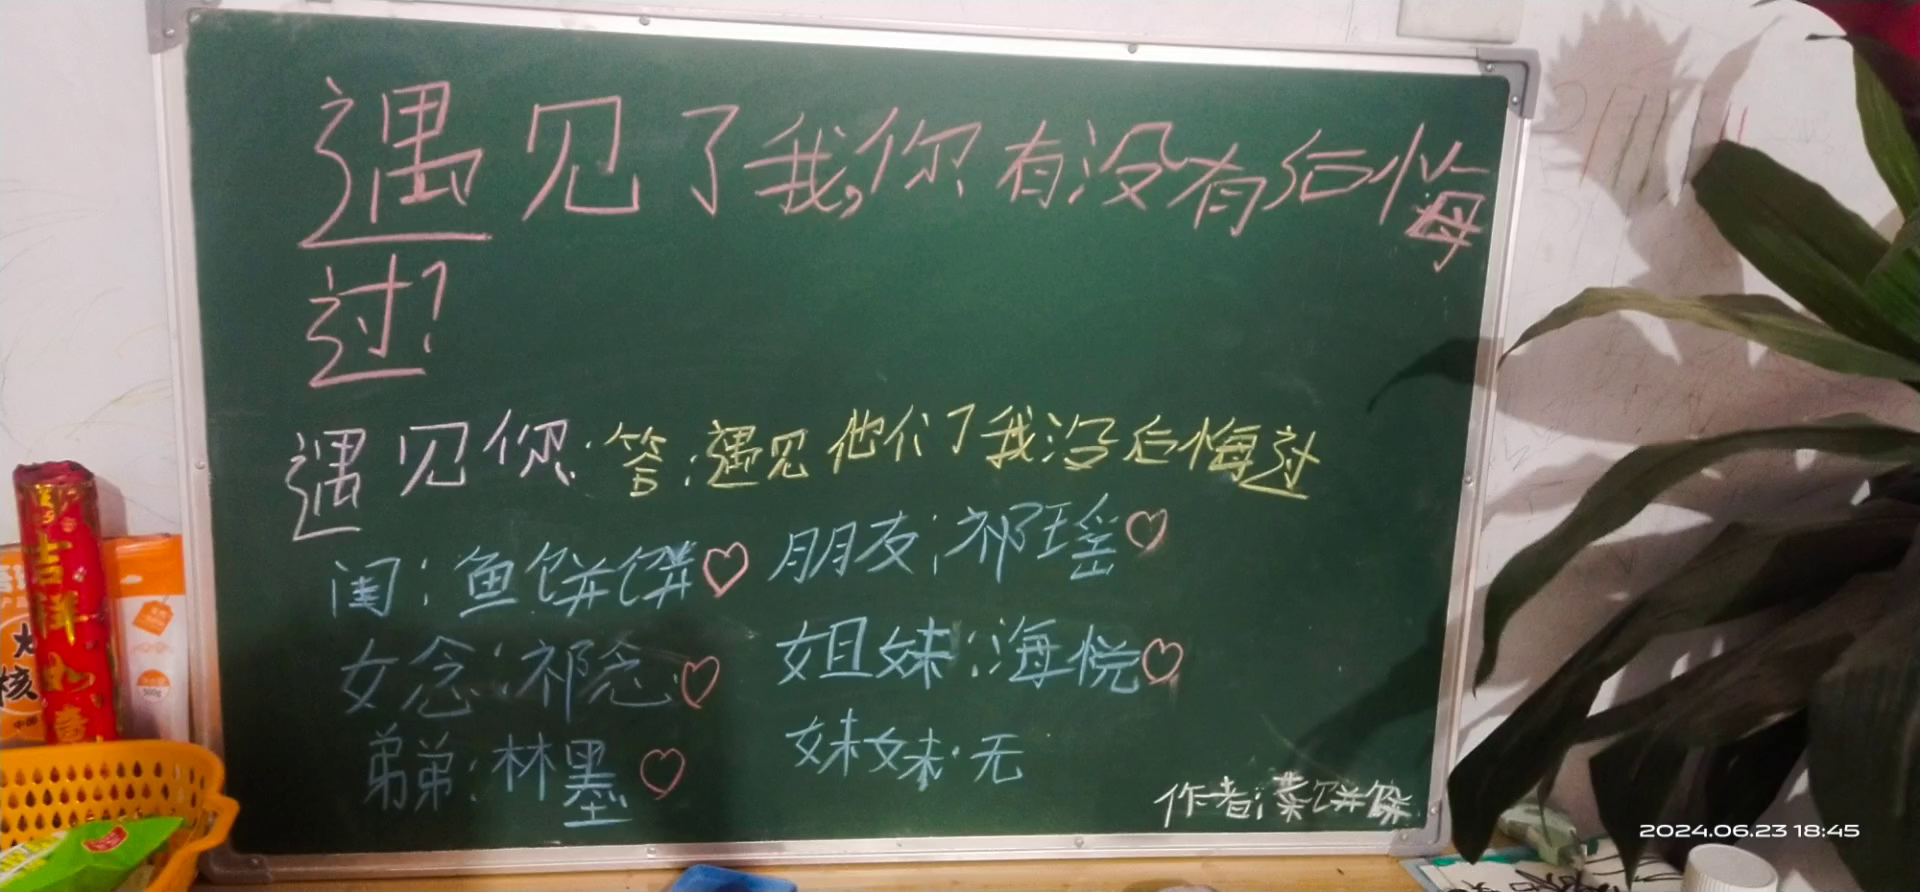 遇见了我,你有没有后悔
过?
遇见你:答:遇见他们了我没后悔过
闺:鱼饼饼♡ 朋友:祁瑶♡
女念:祁念♡ 姐妹:海悦♡
弟弟:林墨♡ 妹妹:无
作者:菜饼
吉祥如意
核
500g
2024.06.23 18:45